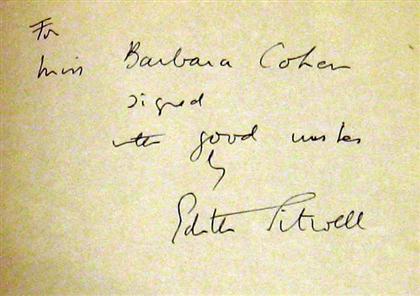 For
Miss Barbara Cohen
signed
with good wishes
by
Edith Sitwell